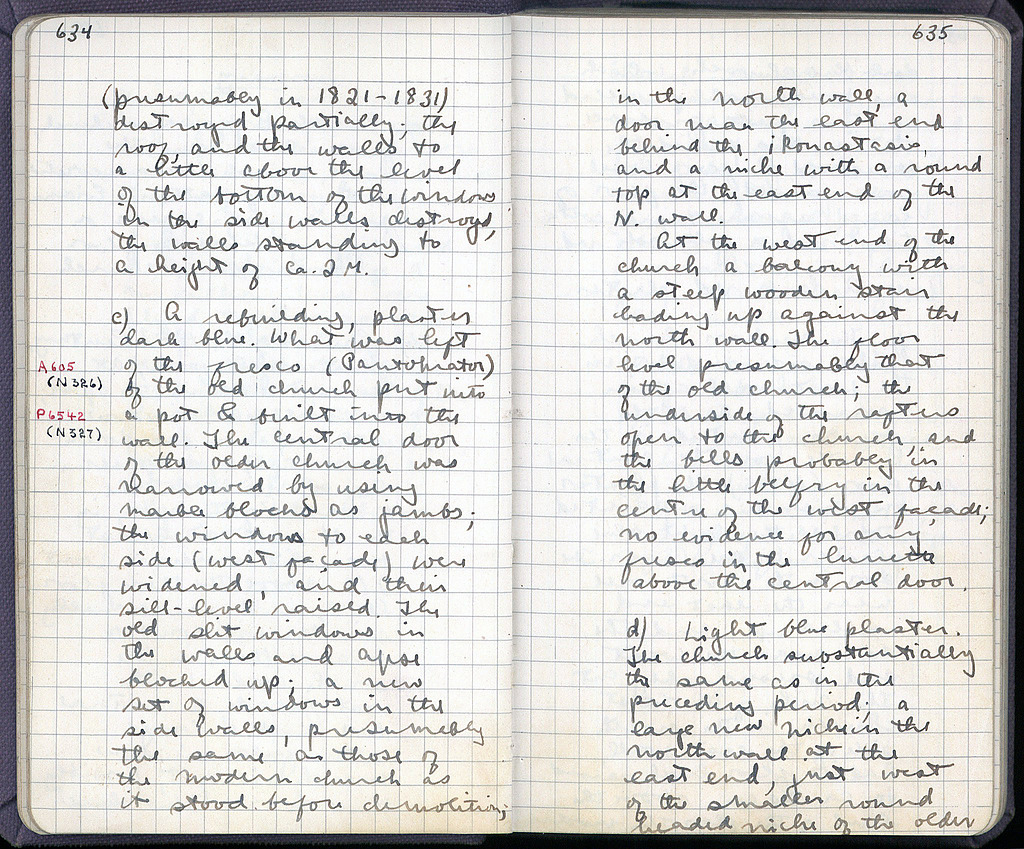 634
(presumably in 1821-1831)
destroyed partially; the
roof and the walls to
a little above the level
of the bottom of the windows
in the side walls destroyed,
the walls standing to
a height of ca. 2 M.
c) A rebuilding, plaster
dark blue. What was left
A605
of the fresco (Pantokrator)
(N326)
of the old church put into
P6542
a pot & built into the
(N327)
wall. The central door
of the older church was
narrowed by using
marble blocks as jambs;
the windows to each
side (west façade) were
widened, and their
sill-level raised. The
old slit windows in
the walls and apse
blocked up; a new
set of windows in the
side walls, presumably
the same as those of
the modern church as
it stood before demolition;
635
in the north wall, a
door near the east end
behind the ikonastasis,
and a niche with a round
top at the east end of the
N. wall.
At the west end of the
church a balcony with
a steep wooden stair
leading up against the
north wall. The floor
level presumably that
of the old church; the
underside of the rafters
open to the church, and
the bells probably in
the little belfry in the
centre of the west façade;
no evidence for any
fresco in the lunette
above the central door.
d) Light blue plaster.
The church substantially
the same as in the
preceding period; a
large new niche in the
north wall at the
east end, just west
of the smaller round
headed niche of the older